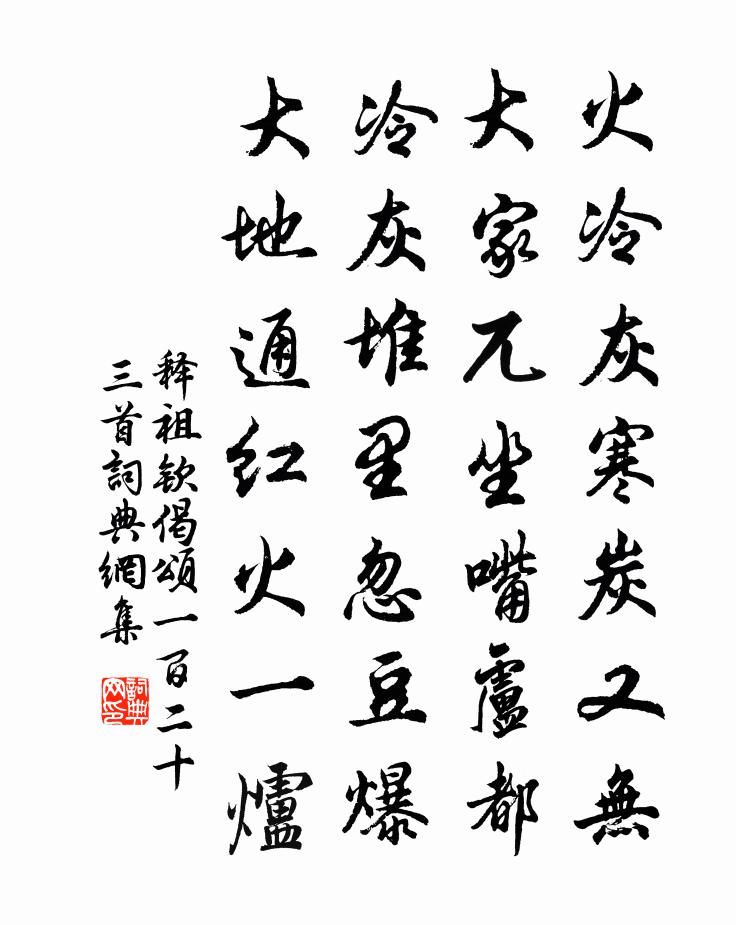 火冷灰寒炭又無
大家兀坐嘴盧都
冷灰堆里忽豆爆
大地通红火一爐
释祖钦偈頌一百二十
三首詞典網集
詞典网印